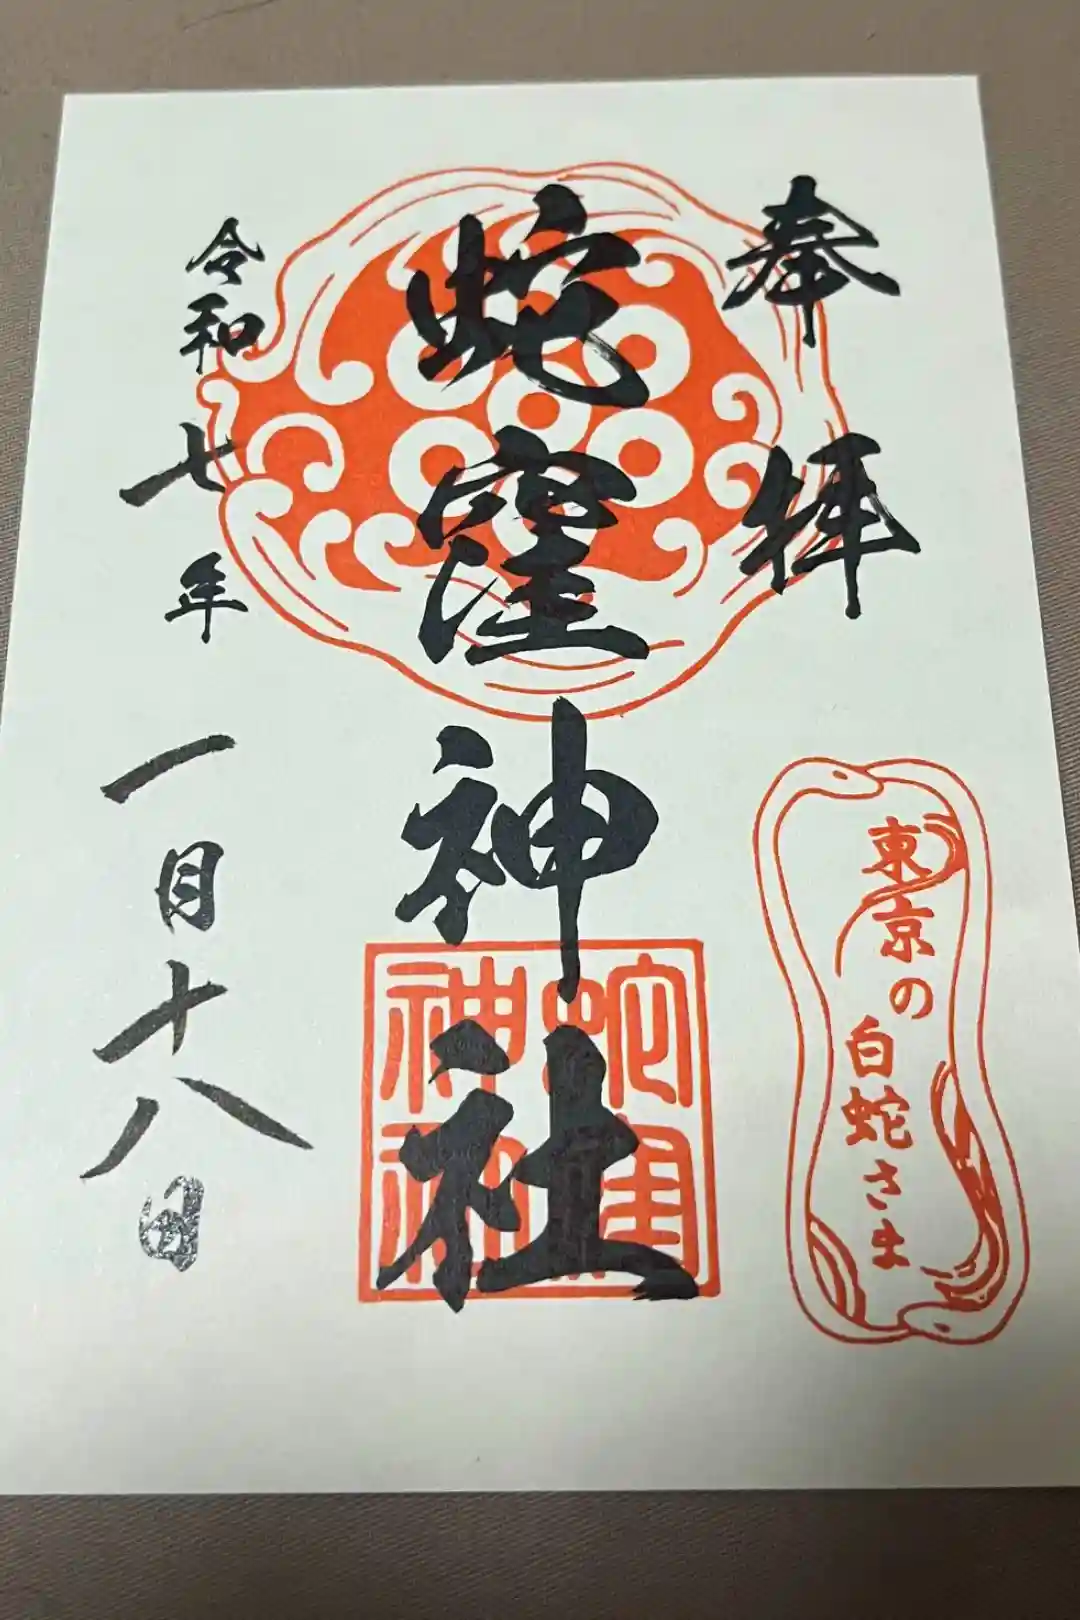 奉拝
東京の
白蛇さま
蛇窪神社
蛇窪
神社
令和七年一月十八日